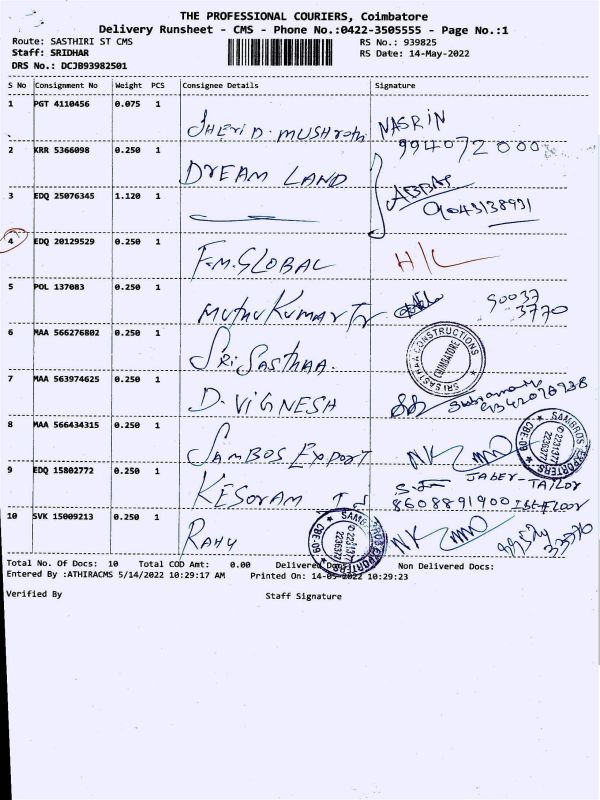 THE PROFESSIONAL COURIERS, Coimbatore
Delivery Runsheet - CMS - Phone No.:0422-3505555 - Page No.:1
Route: SASTHIRI ST CMS RS No.: 939825
Staff: SRIDHAR RS Date: 14-May-2022
DRS No.: DCJB93982501
S No Consignment No Weight PCS Consignee Details Signature
1 PGT 4110456 0.075 1 NASRIN
2 KRR 5366098 0.250 1 DREAM LAND
3 EDQ 25076345 1.120 1 ABBAS
4 EDQ 20129529 0.250 1 F.M. GLOBAL H/L
5 POL 137083 0.250 1 MUTHU KUMAR 90037
3770
6 MAA 566276802 0.250 1 SRI SASTHAA. SRI SASTHAA CONSTRUCTIONS COIMBATORE
7 MAA 563974625 0.250 1 D. VIGNESH
8 MAA 566434315 0.250 1 SAMBOS EXPORT NK SAMBROS EXPORTERS CBE-09
9 EDQ 15802772 0.250 1 KESORAM JABER-TAILOR
8608891900 1st FLOOR
10 SVK 15009213 0.250 1 SAMBROS EXPORTERS CBE-09 NK
Total No. Of Docs: 10 Total COD Amt: 0.00 Delivered Docs: Non Delivered Docs:
Entered By :ATHIRACMS 5/14/2022 10:29:17 AM Printed On: 14-05-2022 10:29:23
Verified By Staff Signature